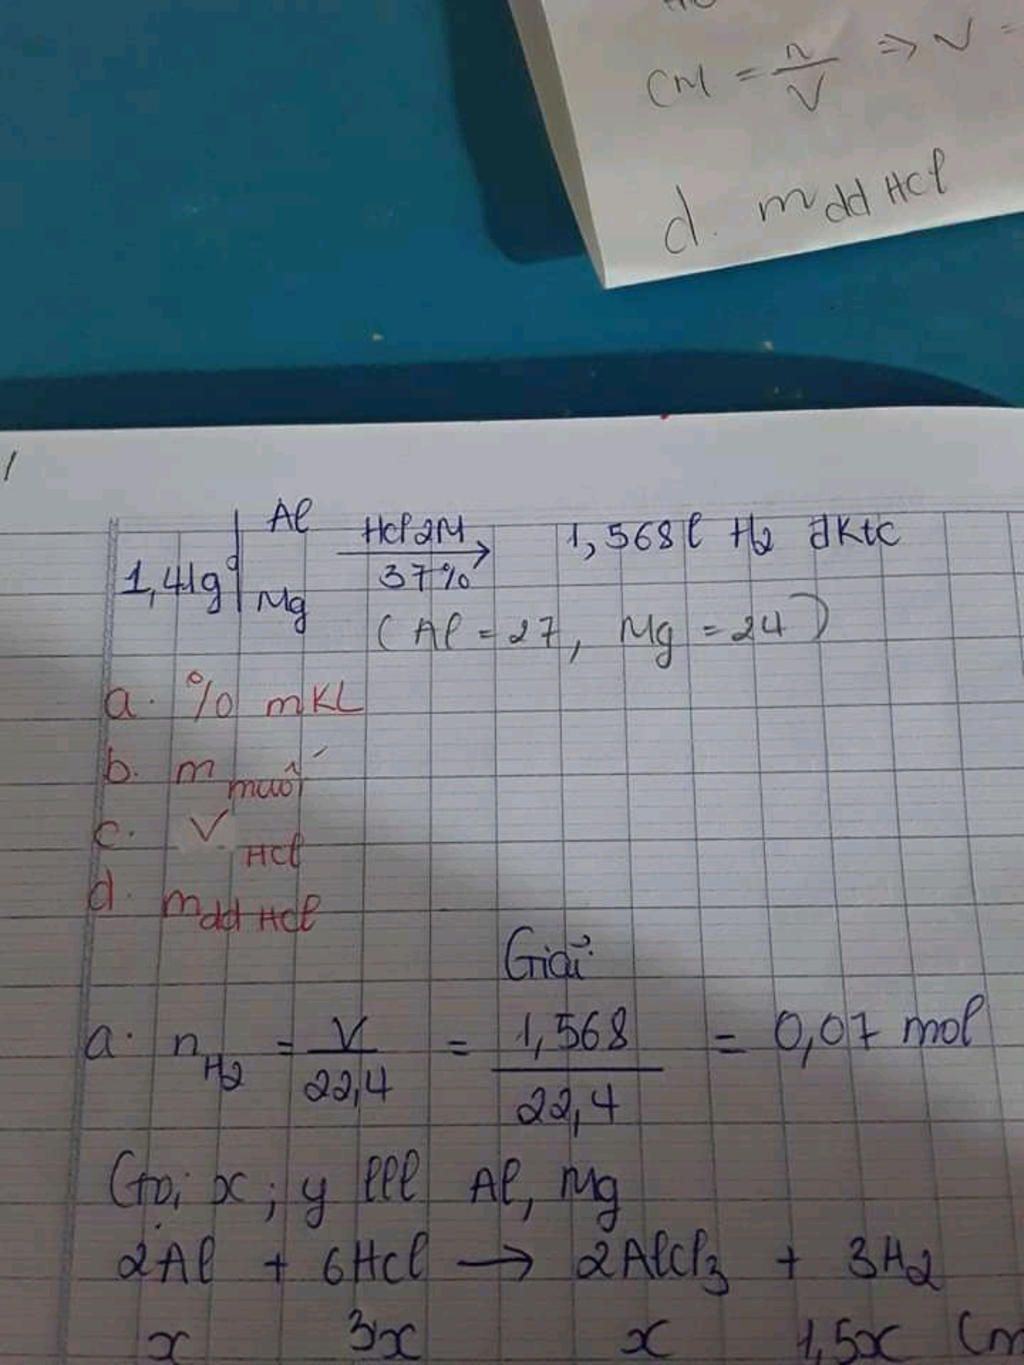 CM = n/V => V =
d. mdd HCl
Al
HCl 2M
1,568 l H2 đktc
1,41g
37%
Mg
(Al = 27, Mg = 24)
a. % mKL
b. m muối
c. V HCl
d. mdd HCl
Giải
a. nH2 = V/22,4 = 1,568/22,4 = 0,07 mol
Gọi x; y lll Al, Mg
2Al + 6HCl → 2AlCl3 + 3H2
x 3x x 1,5x (m